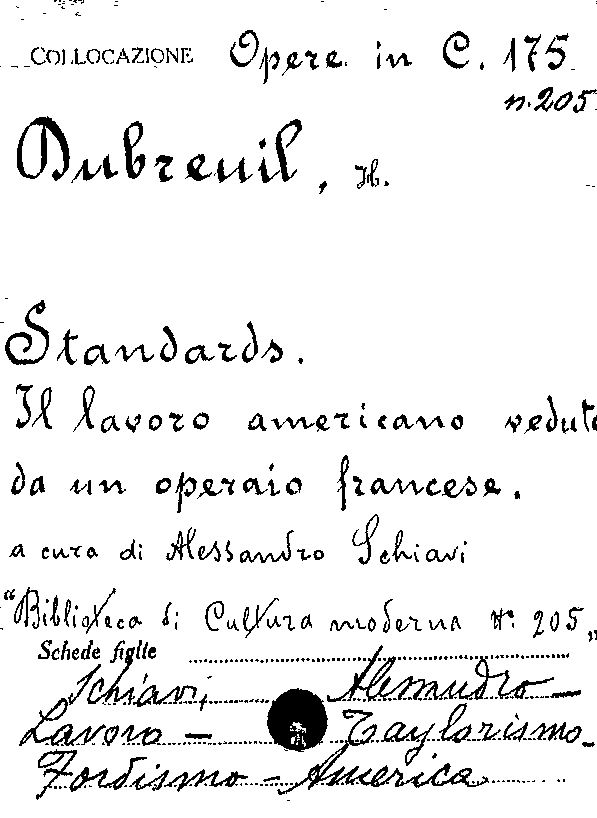 COLLOCAZIONE Opere in C. 175
n. 205
Dubreuil, H.
Standards.
Il lavoro americano veduto
da un operaio francese.
a cura di Alessandro Schiavi
"Biblioteca di Cultura moderna N. 205"
Schede figlie
Schiavi, Alessandro —
Lavoro — Taylorismo —
Fordismo — America